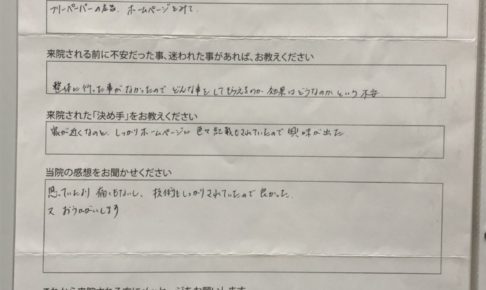 フリーペーパーの広告、ホームページをみて。
来院される前に不安だった事、迷われた事があれば、お教えください
整体に行った事がなかったので どんな事をしてもらえるのか 効果はどうなのか という不安
来院された「決め手」をお教えください
家が近くなのと、しっかりホームページに 色々記載もされていたので 興味が出た。
当院の感想をお聞かせください
思っていたより 痛くもないし、技術もしっかりされていたので良かった。
又 おうかがいします